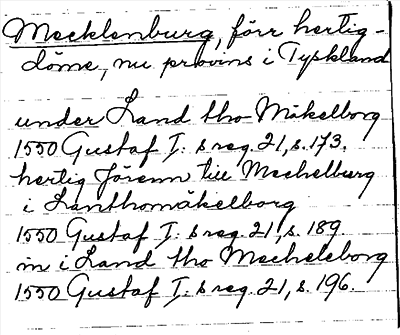 Mecklenburg, förr hertig-
döme, nu provins i Tyskland
under Land tho Mäkelborg
1550 Gustaf I:s reg. 21, s. 173.
hertig Jörenn till Mechelburg
i Lanthomäkelborg
1550 Gustaf I:s reg. 21, s. 189
in i Land tho Mecheleborg
1550 Gustaf I:s reg. 21, s. 196.